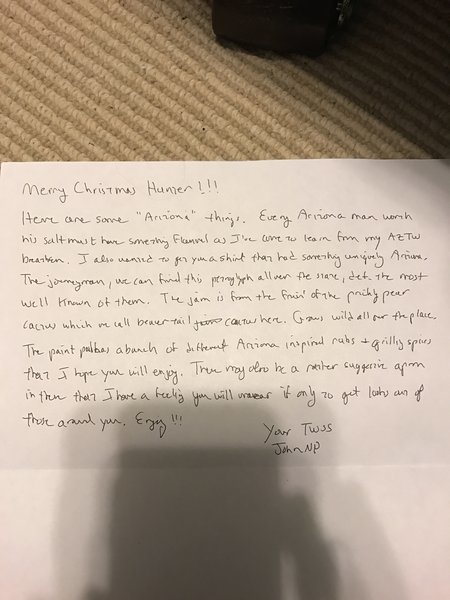 Merry Christmas Hunter!!!
Here are some "Arizona" things. Every Arizona man worth
his salt must have something flannel as I've come to learn from my AZTW
brethren. I also wanted to get you a shirt that had something uniquely Arizona.
The journeyman, we can find this petroglyph all over the state, def. the most
well known of them. The jam is from the fruit of the prickly pear
cactus which we call beaver tail cactus here. Grows wild all over the place.
The paint has a bunch of different Arizona inspired rubs + grilling spices
that I hope you will enjoy. There may also be a rather suggestive apron
in there that I have a feeling you will wear if only to get looks out of
those around you. Enjoy!!!
Your TWSS
John NP